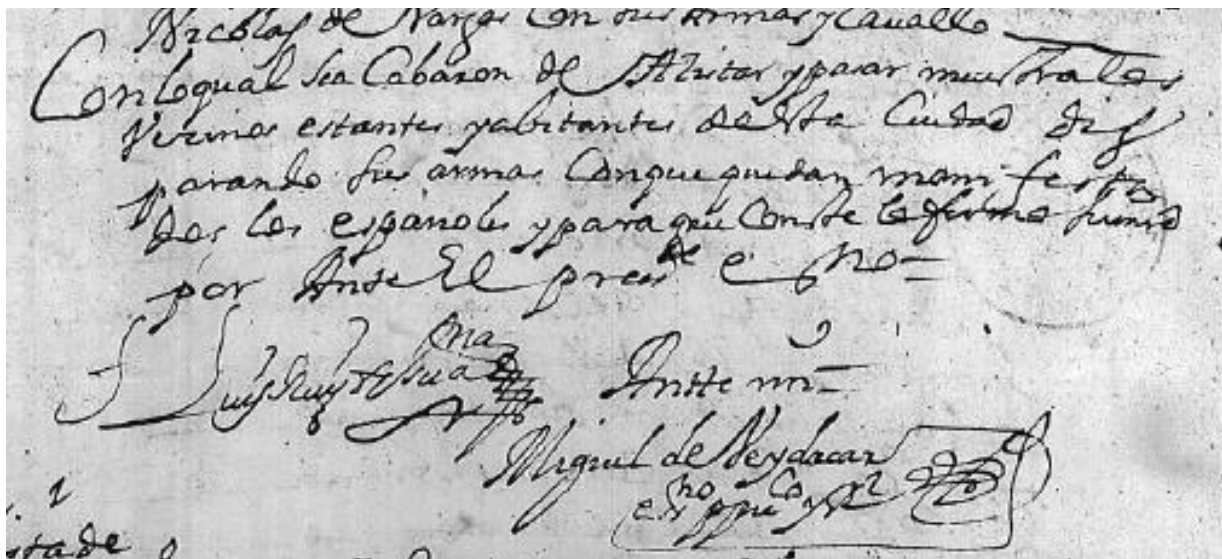 Nicolas de Vargas Con sus armas y Cauallo
Con lo qual sea Cabaron de Alistar y pasar muestra los
Vecinos estantes y abitantes de esta Ciudad dis
parando sus armas Con que quedan manifesta
dos los españoles y para que Conste lo firmo su md
por Ante El presde esno
Luis Ruiz de
Ante mi
Miguel de
esno ppuco y
1
sta de